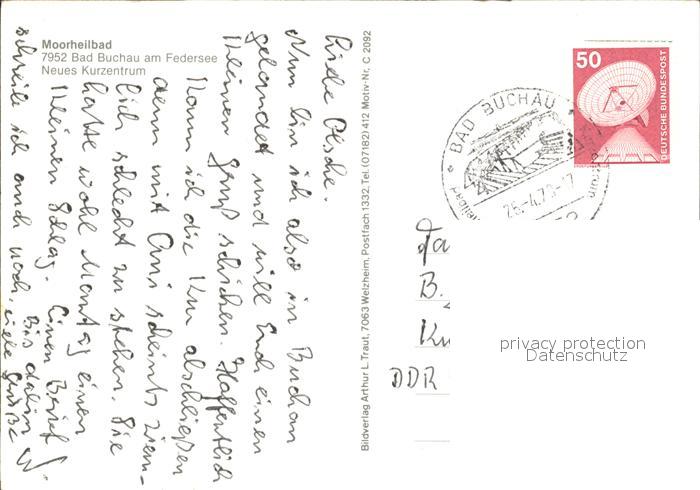 Moorheilbad
7952 Bad Buchau am Federsee
Neues Kurzentrum
Liebe
Nun bin ich also in Buchau
gelandet und will Euch einen
kleinen Gruß schicken. Hoffentlich
kann ich die Kur abschließen
denn mit Omi scheints ziem-
lich schlecht zu stehen. Sie
hatte wohl Montag einen
kleinen Schlag. Einen Brief
schreibe ich auch noch. Bis dahin
viele Grüße
Bildverlag Arthur L. Traut, 7063 Welzheim, Postfach 1332, Tel. (07182) 412 Motiv-Nr. C 2092
50
DEUTSCHE BUNDESPOST
BAD BUCHAU
Fa
B.
Ku
DDR
privacy protection
Datenschutz